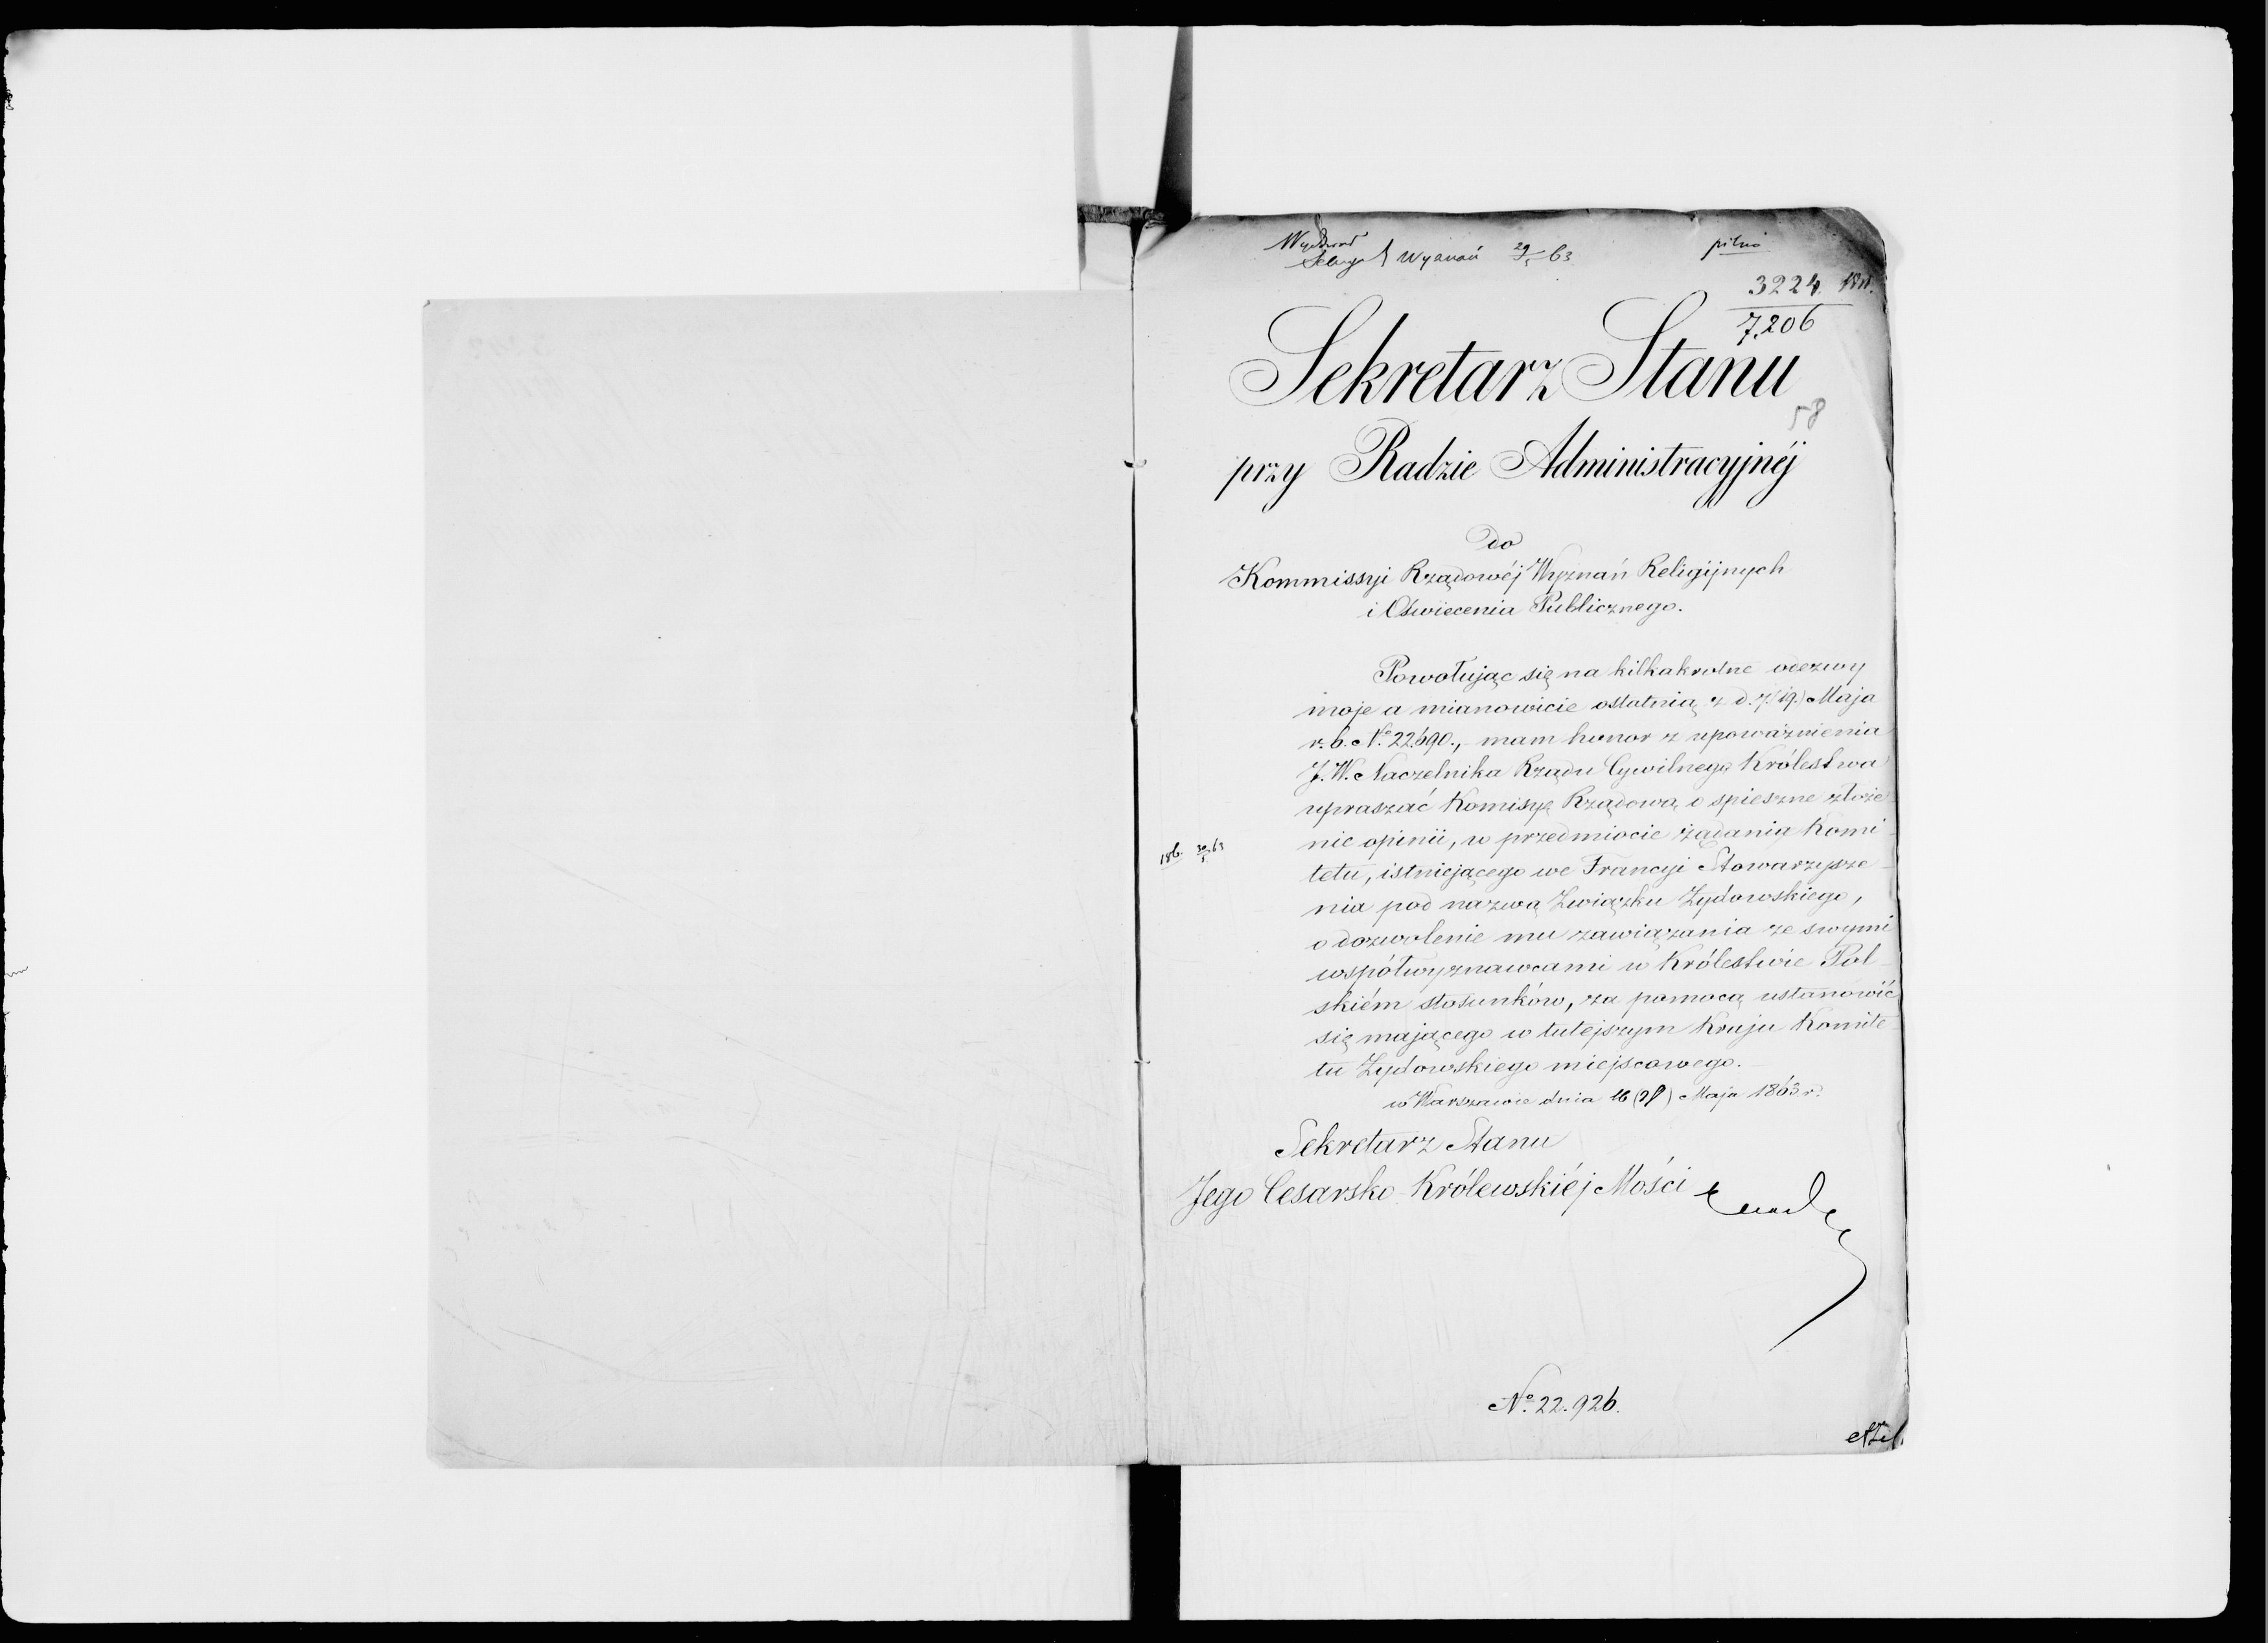 Wydział Wyznań 29/5 63
pilno
3224
7.206
Sekretarz Stanu
58
przy Radzie Administracyjnéj
Do
Kommissyi Rządowéj Wyznań Religijnych
i Oświecenia Publicznego.
Powołując się na kilkakrotne odezwy
moje a mianowicie ostatnią z d. 7/19.) Maja
r. b. No. 22.690., mam honor z upoważnienia
J. W. Naczelnika Rządu Cywilnego Królestwa
upraszać Komisyę Rządową o spieszne złoże-
nie opinii, w przedmiocie żądania Komi-
186. 30/5 63
tetu, istniejącego we Francyi Stowarzysze-
nia pod nazwą Związku Żydowskiego,
o dozwolenie mu zawiązania ze swymi
współwyznawcami w Królestwie Pol-
skiém stosunków, za pomocą ustanowić
się mającego w tutejszym Kraju Komite-
tu Żydowskiego miejscowego.
w Warszawie dnia 16 (28) Maja 1863 r.
Sekretarz Stanu
Jego Cesarsko Królewskiéj Mości
No. 22.926.